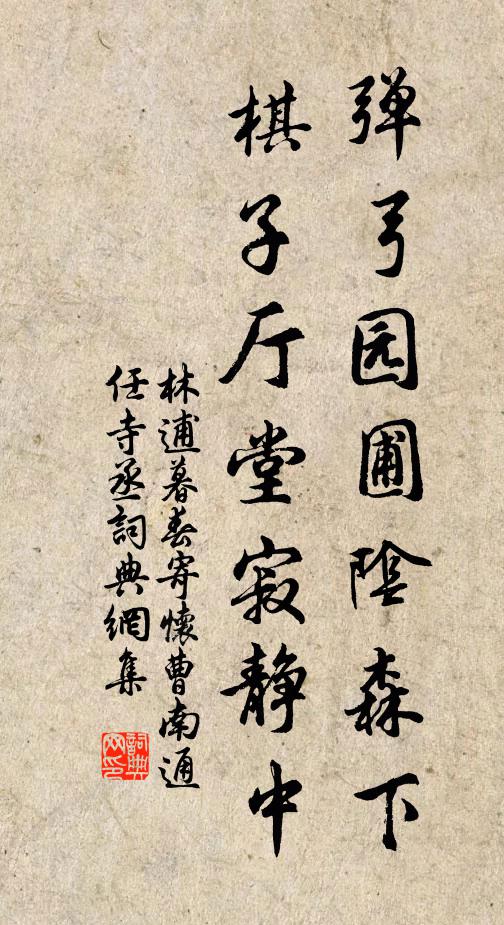 弹弓园圃陰森下
棋子厅堂寂静中
林逋暮春寄懷曹南通
任寺丞詞典網集
詞典网印